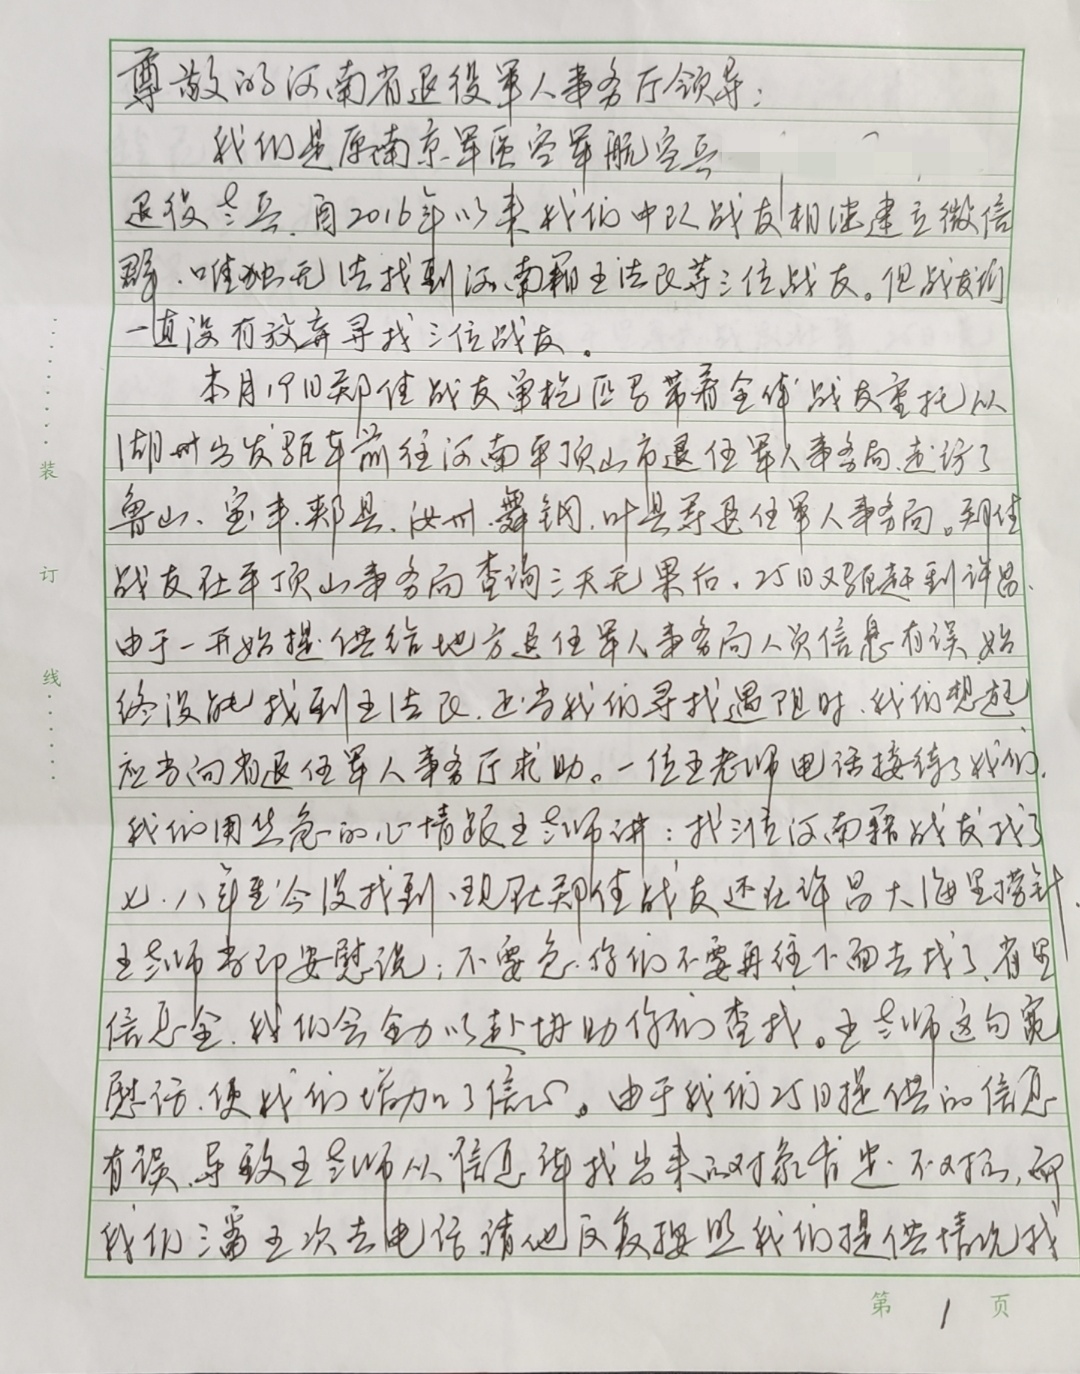 尊敬的河南省退役军人事务厅领导：
我们是原南京军区空军航空兵
退役老兵.自2016年以来我们中队战友相继建立微信
群.唯独无法找到河南籍王法改等三位战友。但战友们
一直没有放弃寻找三位战友。
本月19日郑佳战友单枪匹马带着全体战友重托从
湖州出发驱车前往河南平顶山市退伍军人事务局,走访了
鲁山、宝丰.郏县、汝州.舞钢.叶县等退伍军人事务局。郑佳
战友在平顶山事务局查询三天无果后.25日又驱赶到许昌.
由于一开始提供给地方退伍军人事务局人员信息有误,始
终没能找到王法改.正当我们寻找遇阻时.我们想起
应当向省退伍军人事务厅求助。一位王老师电话接待了我们.
我们用焦急的心情跟王老师讲：找三位河南籍战友找了
七.八年至今没找到.现在郑佳战友还在许昌大海里捞针.
王老师当即安慰说：不要急.你们不要再往下面去找了,省里
信息全.我们会全力以赴协助你们查找。王老师这句宽
慰话.使我们增加了信心。由于我们25日提供的信息
有误.导致王老师从信息库找出来的对象年龄不对称,而
我们三番五次去电话请他反复按照我们提供情况找
装
订
线
第 1 页